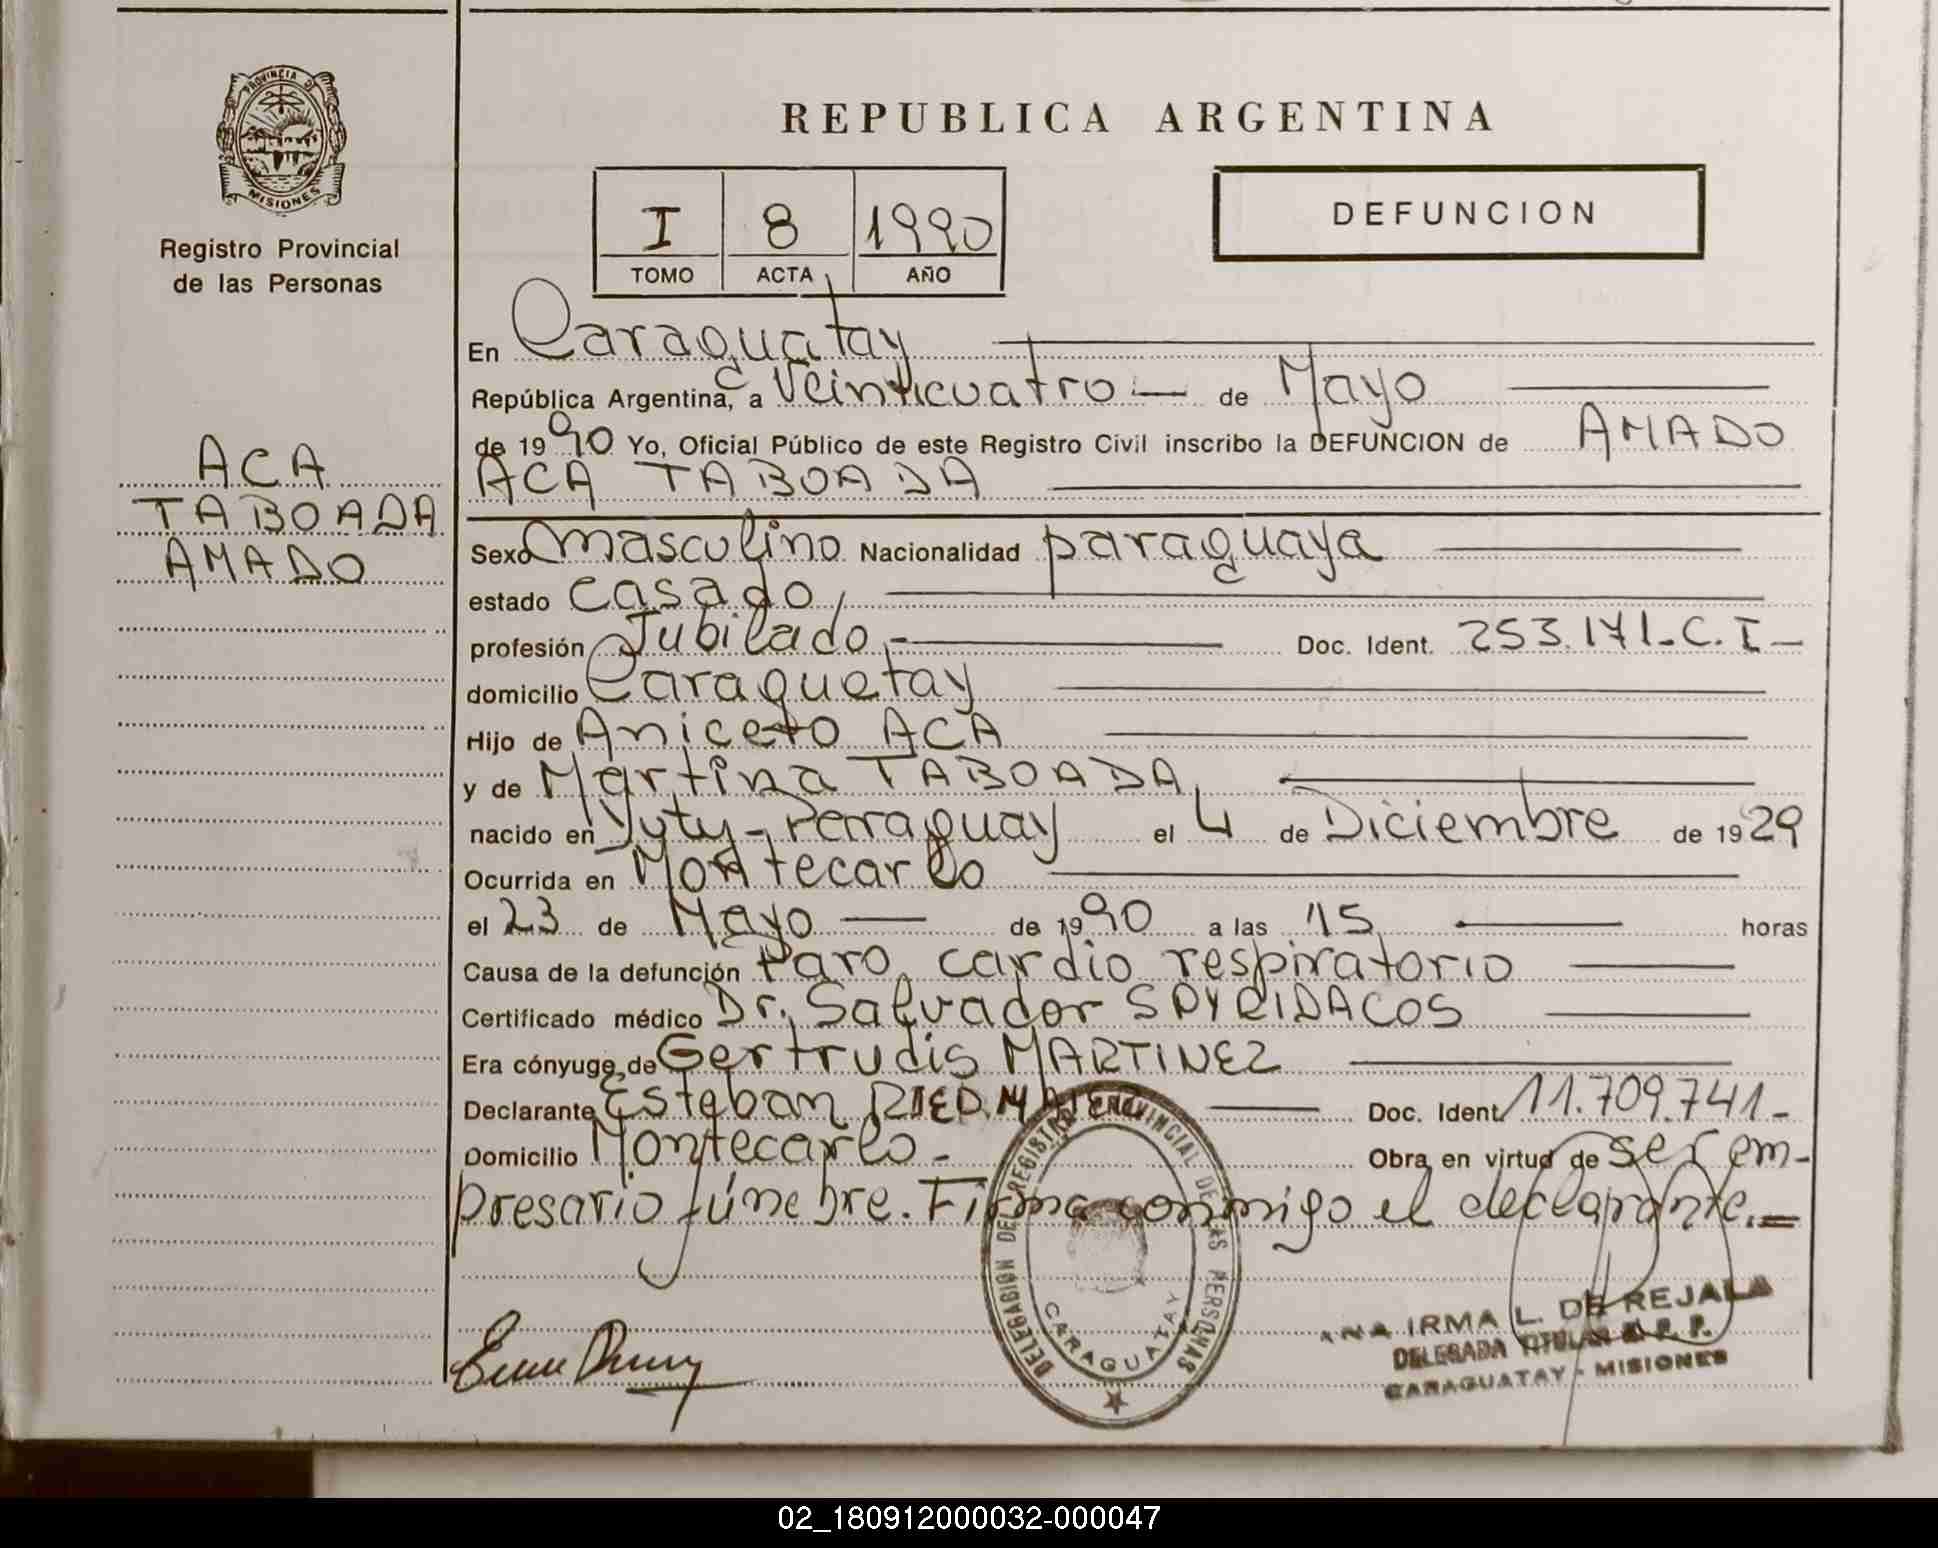 PROVINCIA D
MISIONES
Registro Provincial
de las Personas
ACA
TABOADA
AMADO
REPUBLICA ARGENTINA
I 8 1990
TOMO ACTA AÑO
DEFUNCION
En Caraguatay
República Argentina, a Veinticuatro — de Mayo
de 19 90 Yo, Oficial Público de este Registro Civil inscribo la DEFUNCION de AMADO
ACA TABOADA
Sexo masculino Nacionalidad paraguaya
estado casado,
profesión Jubilado.- Doc. Ident. 253.171-C.I-
domicilio Caraguatay
Hijo de Aniceto ACA
y de Martina TABOADA
nacido en Yuty-Parraguay el 4 de Diciembre de 19 29
Ocurrida en Montecarlo
el 23 de Mayo — de 19 90 a las 15 horas
Causa de la defunción Paro cardio respiratorio
Certificado médico Dr. Salvador SPYRIDACOS
Era cónyuge de Gertrudis MARTINEZ
Declarante Esteban RIEDMAIER Doc. Ident. 11.709.741-
Domicilio Montecarlo.- Obra en virtud de ser em-
presario fúnebre. Firma conmigo el declarante.=
DELEGACION DEL REGISTRO PROVINCIAL DE LAS PERSONAS
CARAGUATAY
ANA IRMA L. DE REJALA
DELEGADA TITULAR R. P. P.
CARAGUATAY - MISIONES
02_180912000032-000047